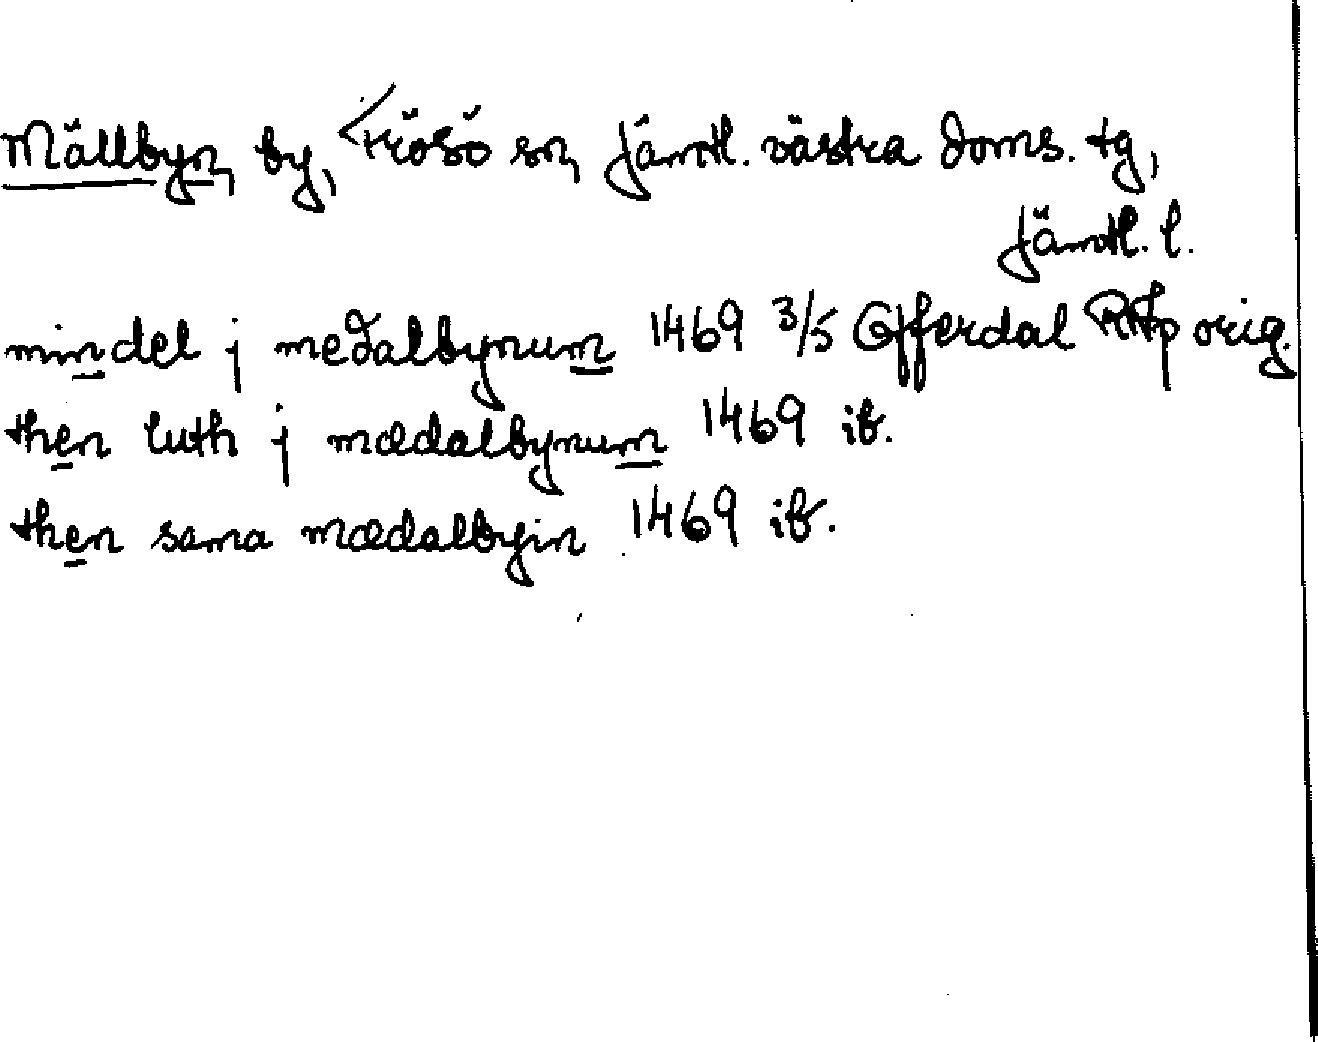 Mällbyn, by, Frösö sn, Jämtl. västra doms. tg,
Jämtl. l.
mindel j medalbynum 1469 3/5 Offerdal RAp orig.
then luth j mædalbynum 1469 ib.
then sama mædalbyin 1469 ib.